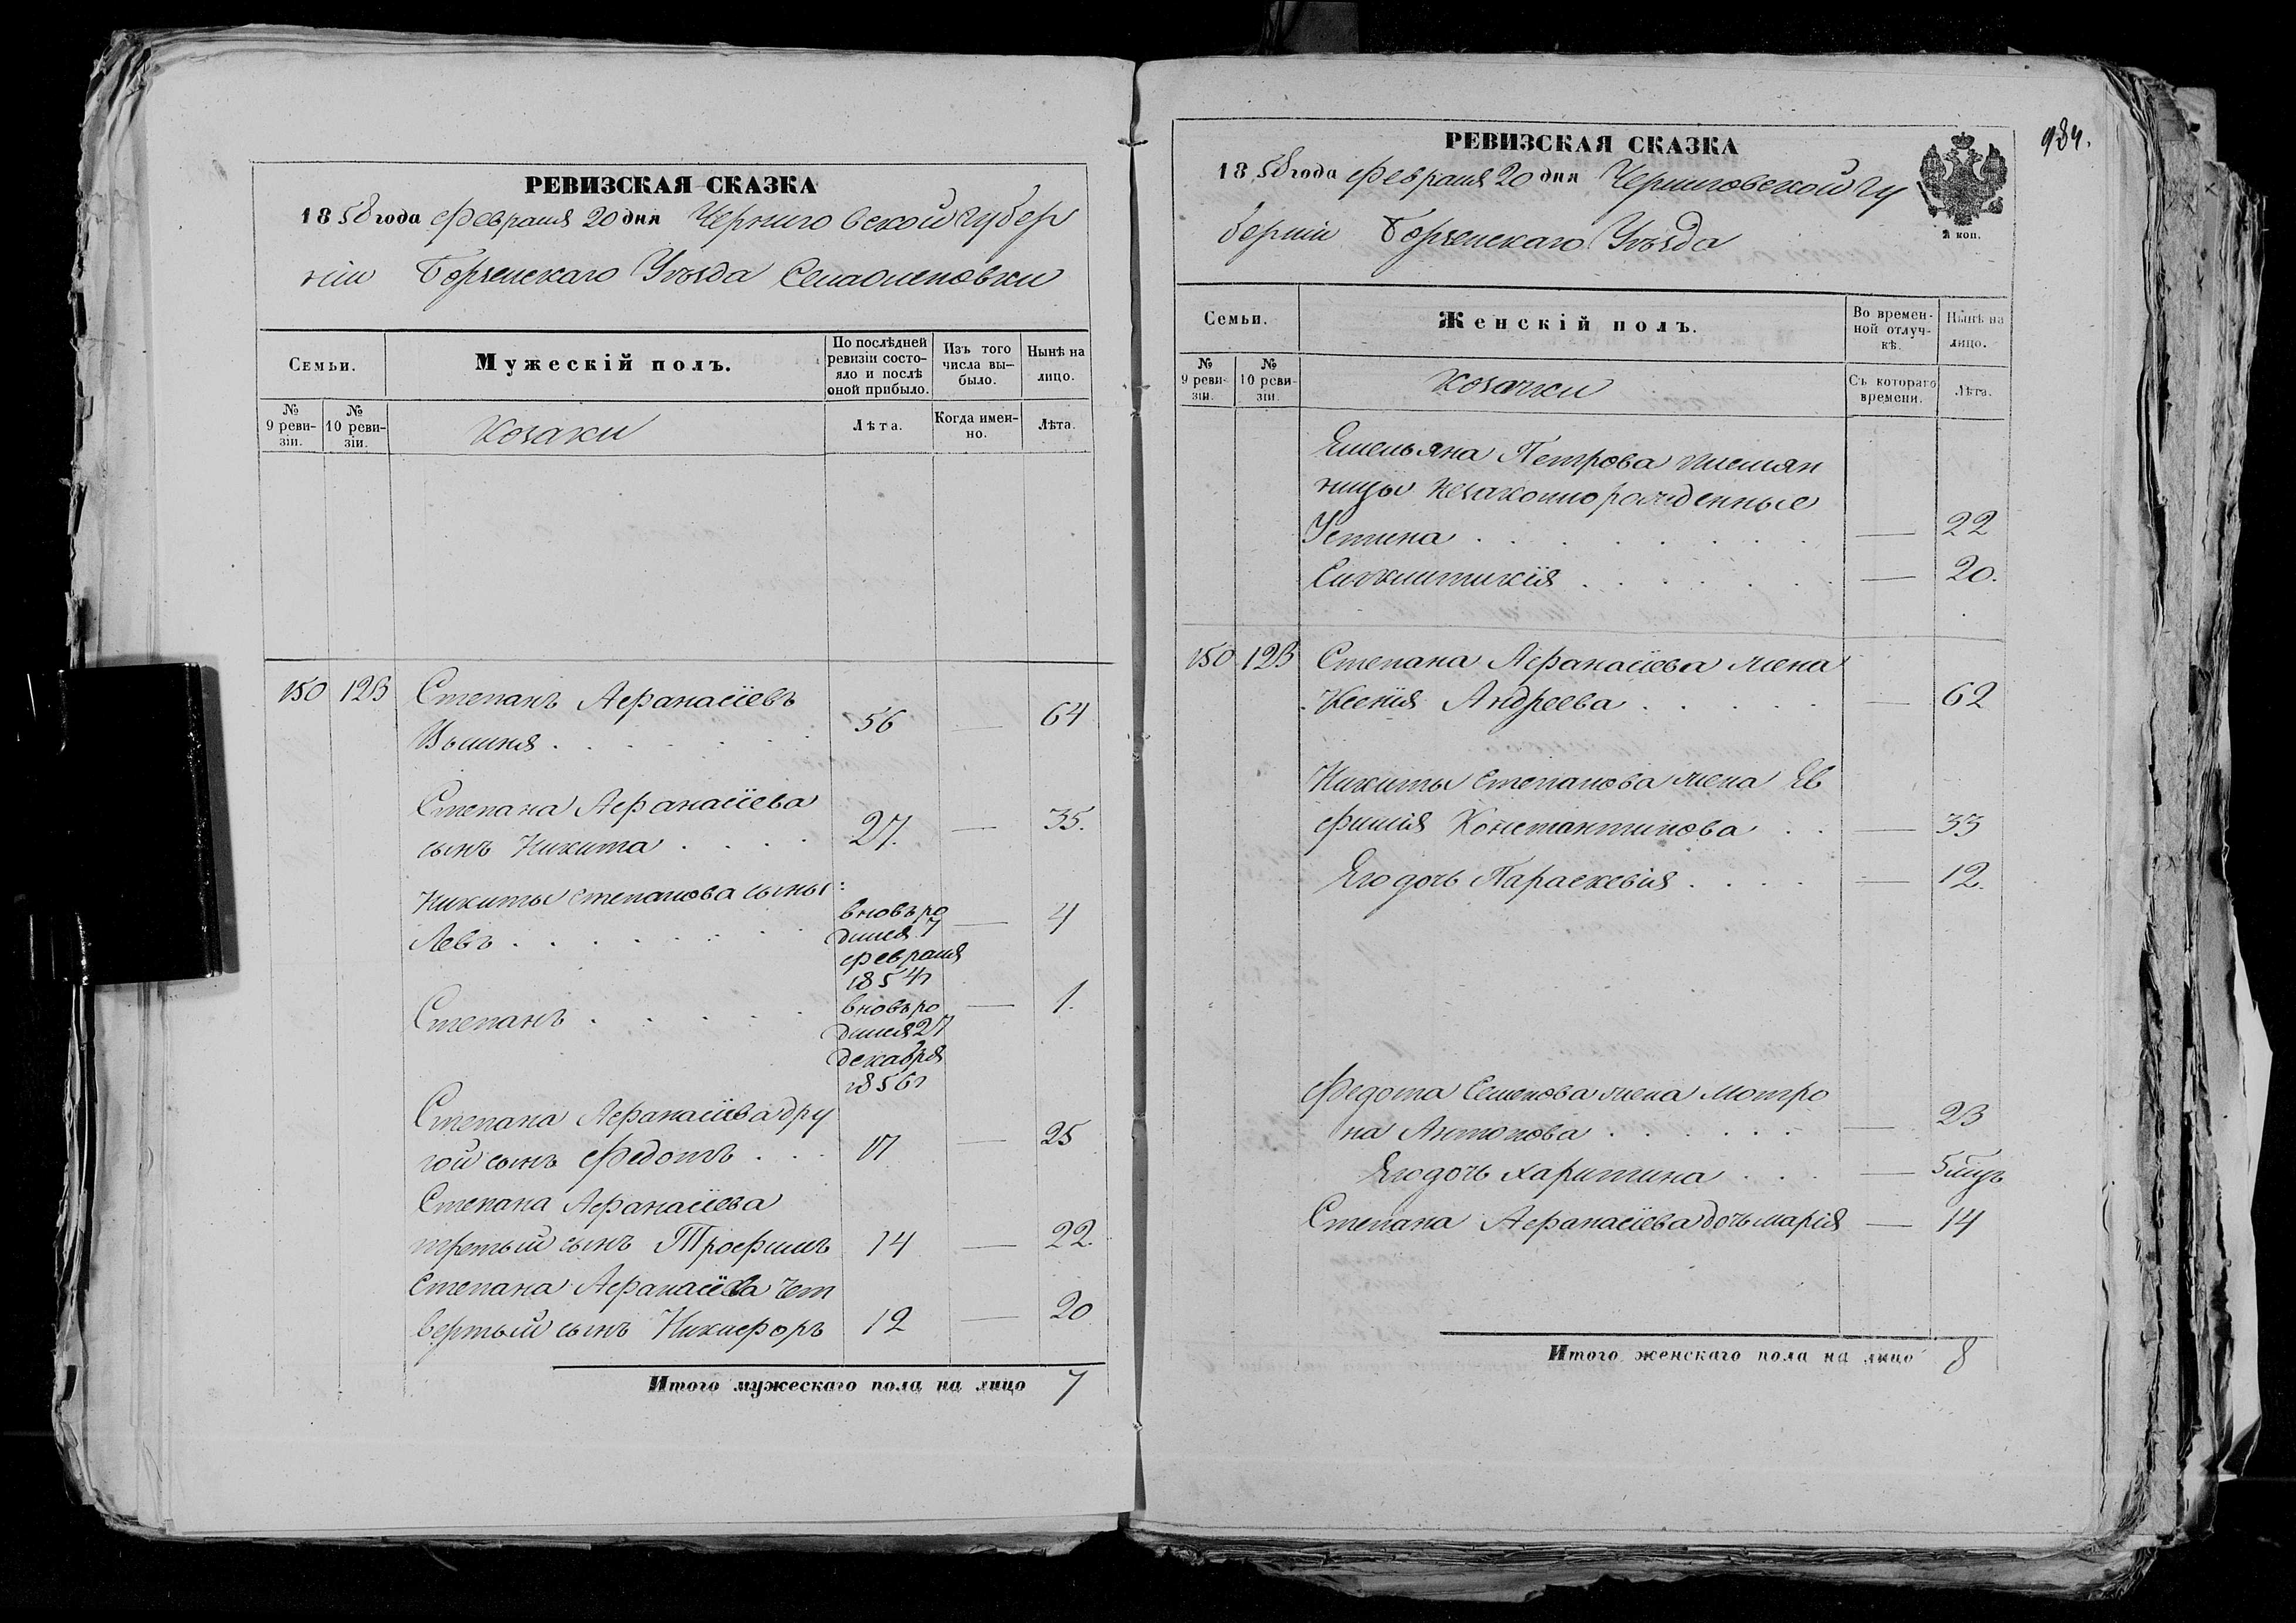 РЕВИЗСКАЯ СКАЗКА
1858 года Февраля 20 дня Черниговской губер
ніи Борзенскаго Уѣзда
Семьи.
Мужескій полъ.
По послѣдней ревизіи состояло и послѣ оной прибыло.
Изъ того числа вы-было.
Нынѣ на лицо.
№ 9 реви-зіи.
№ 10 реви-зіи.
Козаки
Лѣта.
Когда имен-но.
Лѣта.
150 123 Степанъ Афанасіевъ
Вышня . . . . . . . 56 — 64
Степана Афанасіева
сынъ Никита . . . . 27. — 35.
Никиты Степанова сыны:
Левъ . . . . . . . вновь ро
дился 7
февраля
1854 г — 4
Степанъ . . . . . вновь ро
дился 27
декабря
1856 г — 1.
Степана Афанасіева дру
гой сынъ Федотъ . . . 17 — 25
Степана Афанасіева
третій сынъ Трофимъ 14 — 22.
Степана Афанасіева чет
вертый сынъ Никифоръ 12 — 20
Итого мужескаго пола на лицо 7
984.
РЕВИЗСКАЯ СКАЗКА
1858 года Февраля 20 дня Черниговской гу
берніи Борзенскаго Уѣзда
коп.
Семьи.
Женскій полъ.
Во времен-ной отлуч-кѣ.
Нынѣ на лицо.
№ 9 реви-зіи.
№ 10 реви-зіи.
Козачки
Съ котораго времени.
Лѣта.
Емельяна Петрова племян
ницы незаконнорожденные
Устина . . . . . . . . — 22
Синклитикія . . . . . . — 20.
150 123 Степана Афанасіева жена
Ксенія Андреева . . . . . — 62
Никиты Степанова жена Ев
фимія Константинова . . — 33
Его дочь Параскевія . . . . — 12.
Федота Степанова жена Мотро
на Антонова . . . . . . — 23
Его дочь Харитина . . . — 5 мцъ
Степана Афанасіева дочь Марія — 14
Итого женскаго пола на лицо 8